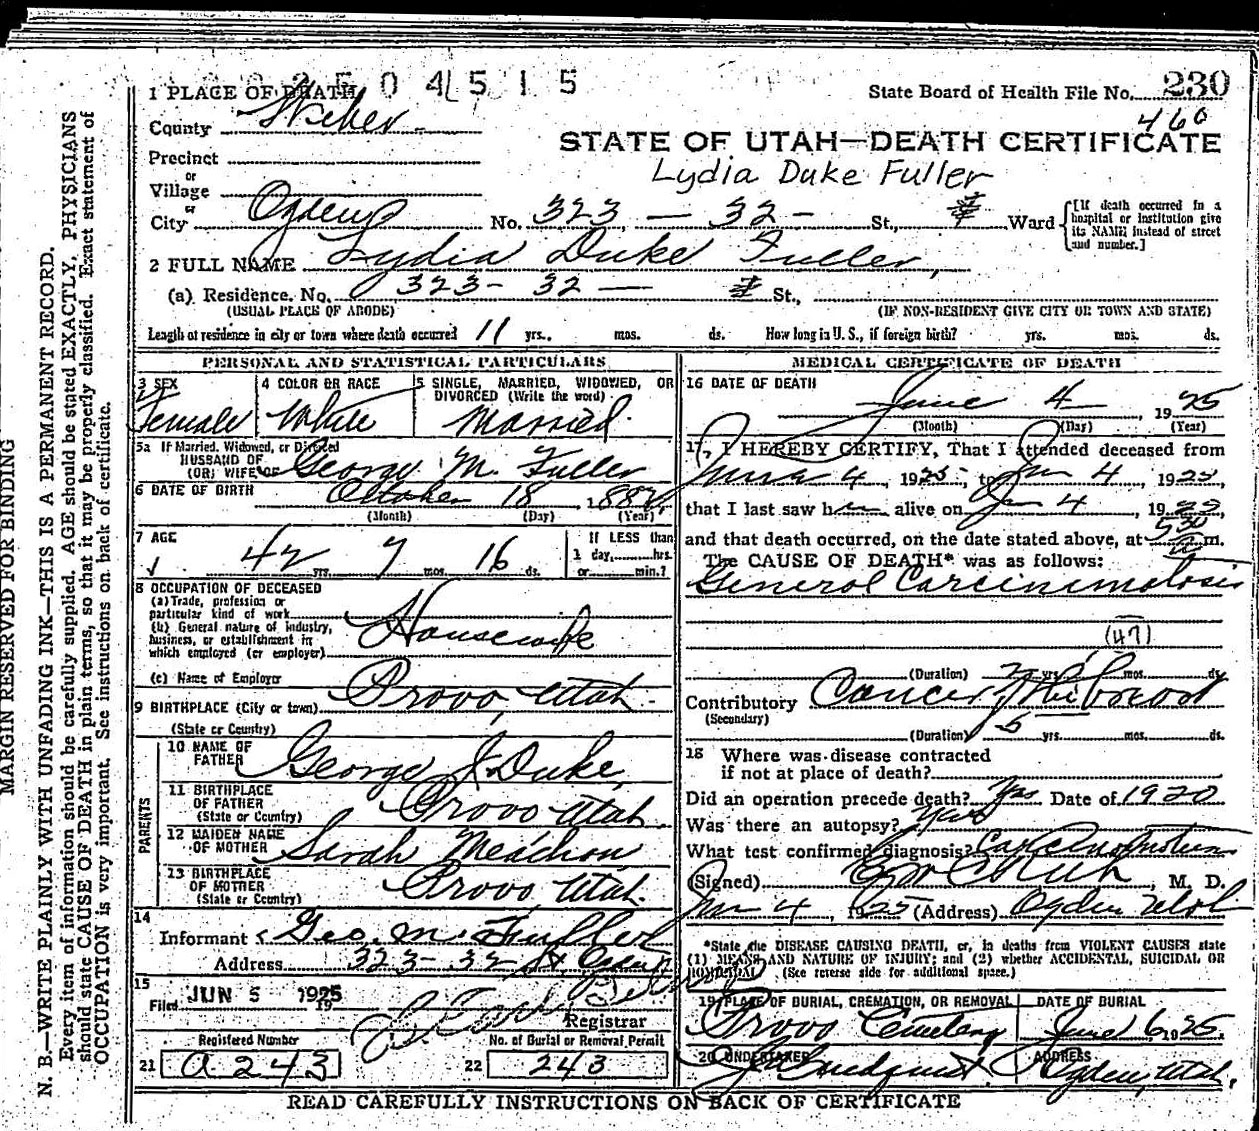 02504515
1 PLACE OF DEATH
State Board of Health File No. 230
460
County Weber
STATE OF UTAH—DEATH CERTIFICATE
Precinct
or
Lydia Duke Fuller
Village
or
City Ogden No. 323 — 32 — St., Ward
[If death occurred in a hospital or institution give its NAME instead of street and number.]
2 FULL NAME Lydia Duke Fuller,
(a) Residence. No. 323 - 32 — St.,
(USUAL PLACE OF ABODE) (IF NON-RESIDENT GIVE CITY OR TOWN AND STATE)
Length of residence in city or town where death occurred 11 yrs. mos. ds. How long in U.S., if foreign birth? yrs. mos. ds.
PERSONAL AND STATISTICAL PARTICULARS
3 SEX
Female
4 COLOR OR RACE
White
5 SINGLE, MARRIED, WIDOWED, OR DIVORCED (Write the word)
Married
5a If Married, Widowed, or Divorced
HUSBAND OF
(OR) WIFE OF George M. Fuller
6 DATE OF BIRTH October 18 1882
(Month) (Day) (Year)
7 AGE
42 yrs. 7 mos. 16 ds.
If LESS than
1 day, hrs.
or min.?
8 OCCUPATION OF DECEASED
(a) Trade, profession or
particular kind of work
(b) General nature of industry,
business, or establishment in
which employed (or employer)
Housewife
(c) Name of Employer
9 BIRTHPLACE (City or town) Provo, Utah.
(State or Country)
PARENTS
10 NAME OF
FATHER George J. Duke,
11 BIRTHPLACE
OF FATHER
(State or Country) Provo Utah.
12 MAIDEN NAME
OF MOTHER Sarah Meachon
13 BIRTHPLACE
OF MOTHER
(State or Country) Provo, Utah.
14
Informant Geo. M. Fuller
Address 323 - 32 St. Ogden
15
Filed JUN 5 1925
Registrar
Registered Number
21 a 243
No. of Burial or Removal Permit
22 243
MEDICAL CERTIFICATE OF DEATH
16 DATE OF DEATH
June 4 — , 1925
(Month) (Day) (Year)
17, I HEREBY CERTIFY, That I attended deceased from
June 4, 1925, to Jun 4, 1925
that I last saw her alive on Jun 4, 1925,
and that death occurred, on the date stated above, at 530 a m.
The CAUSE OF DEATH* was as follows:
General Carcinimatosis
(47)
(Duration) 2 yrs. mos. ds
Contributory Cancer of the breast
(Secondary)
(Duration) 5 yrs. mos. ds.
18 Where was disease contracted
if not at place of death?
Did an operation precede death? Yes Date of 1920
Was there an autopsy? Yes
What test confirmed diagnosis?
(Signed) , M. D.
Jun 4, 1925 (Address) Ogden Utah
*State the DISEASE CAUSING DEATH, or, in deaths from VIOLENT CAUSES state
(1) MEANS AND NATURE OF INJURY; and (2) whether ACCIDENTAL, SUICIDAL OR
HOMICIDAL. (See reverse side for additional space.)
19 PLACE OF BURIAL, CREMATION, OR REMOVAL
Provo Cemetery
DATE OF BURIAL
June 6, 1925.
20 UNDERTAKER
Lindquist
ADDRESS
Ogden, Utah.
READ CAREFULLY INSTRUCTIONS ON BACK OF CERTIFICATE
MARGIN RESERVED FOR BINDING
N. B.—WRITE PLAINLY WITH UNFADING INK—THIS IS A PERMANENT RECORD.
Every item of information should be carefully supplied. AGE should be stated EXACTLY. PHYSICIANS
should state CAUSE OF DEATH in plain terms, so that it may be properly classified. Exact statement of
OCCUPATION is very important. See instructions on back of certificate.